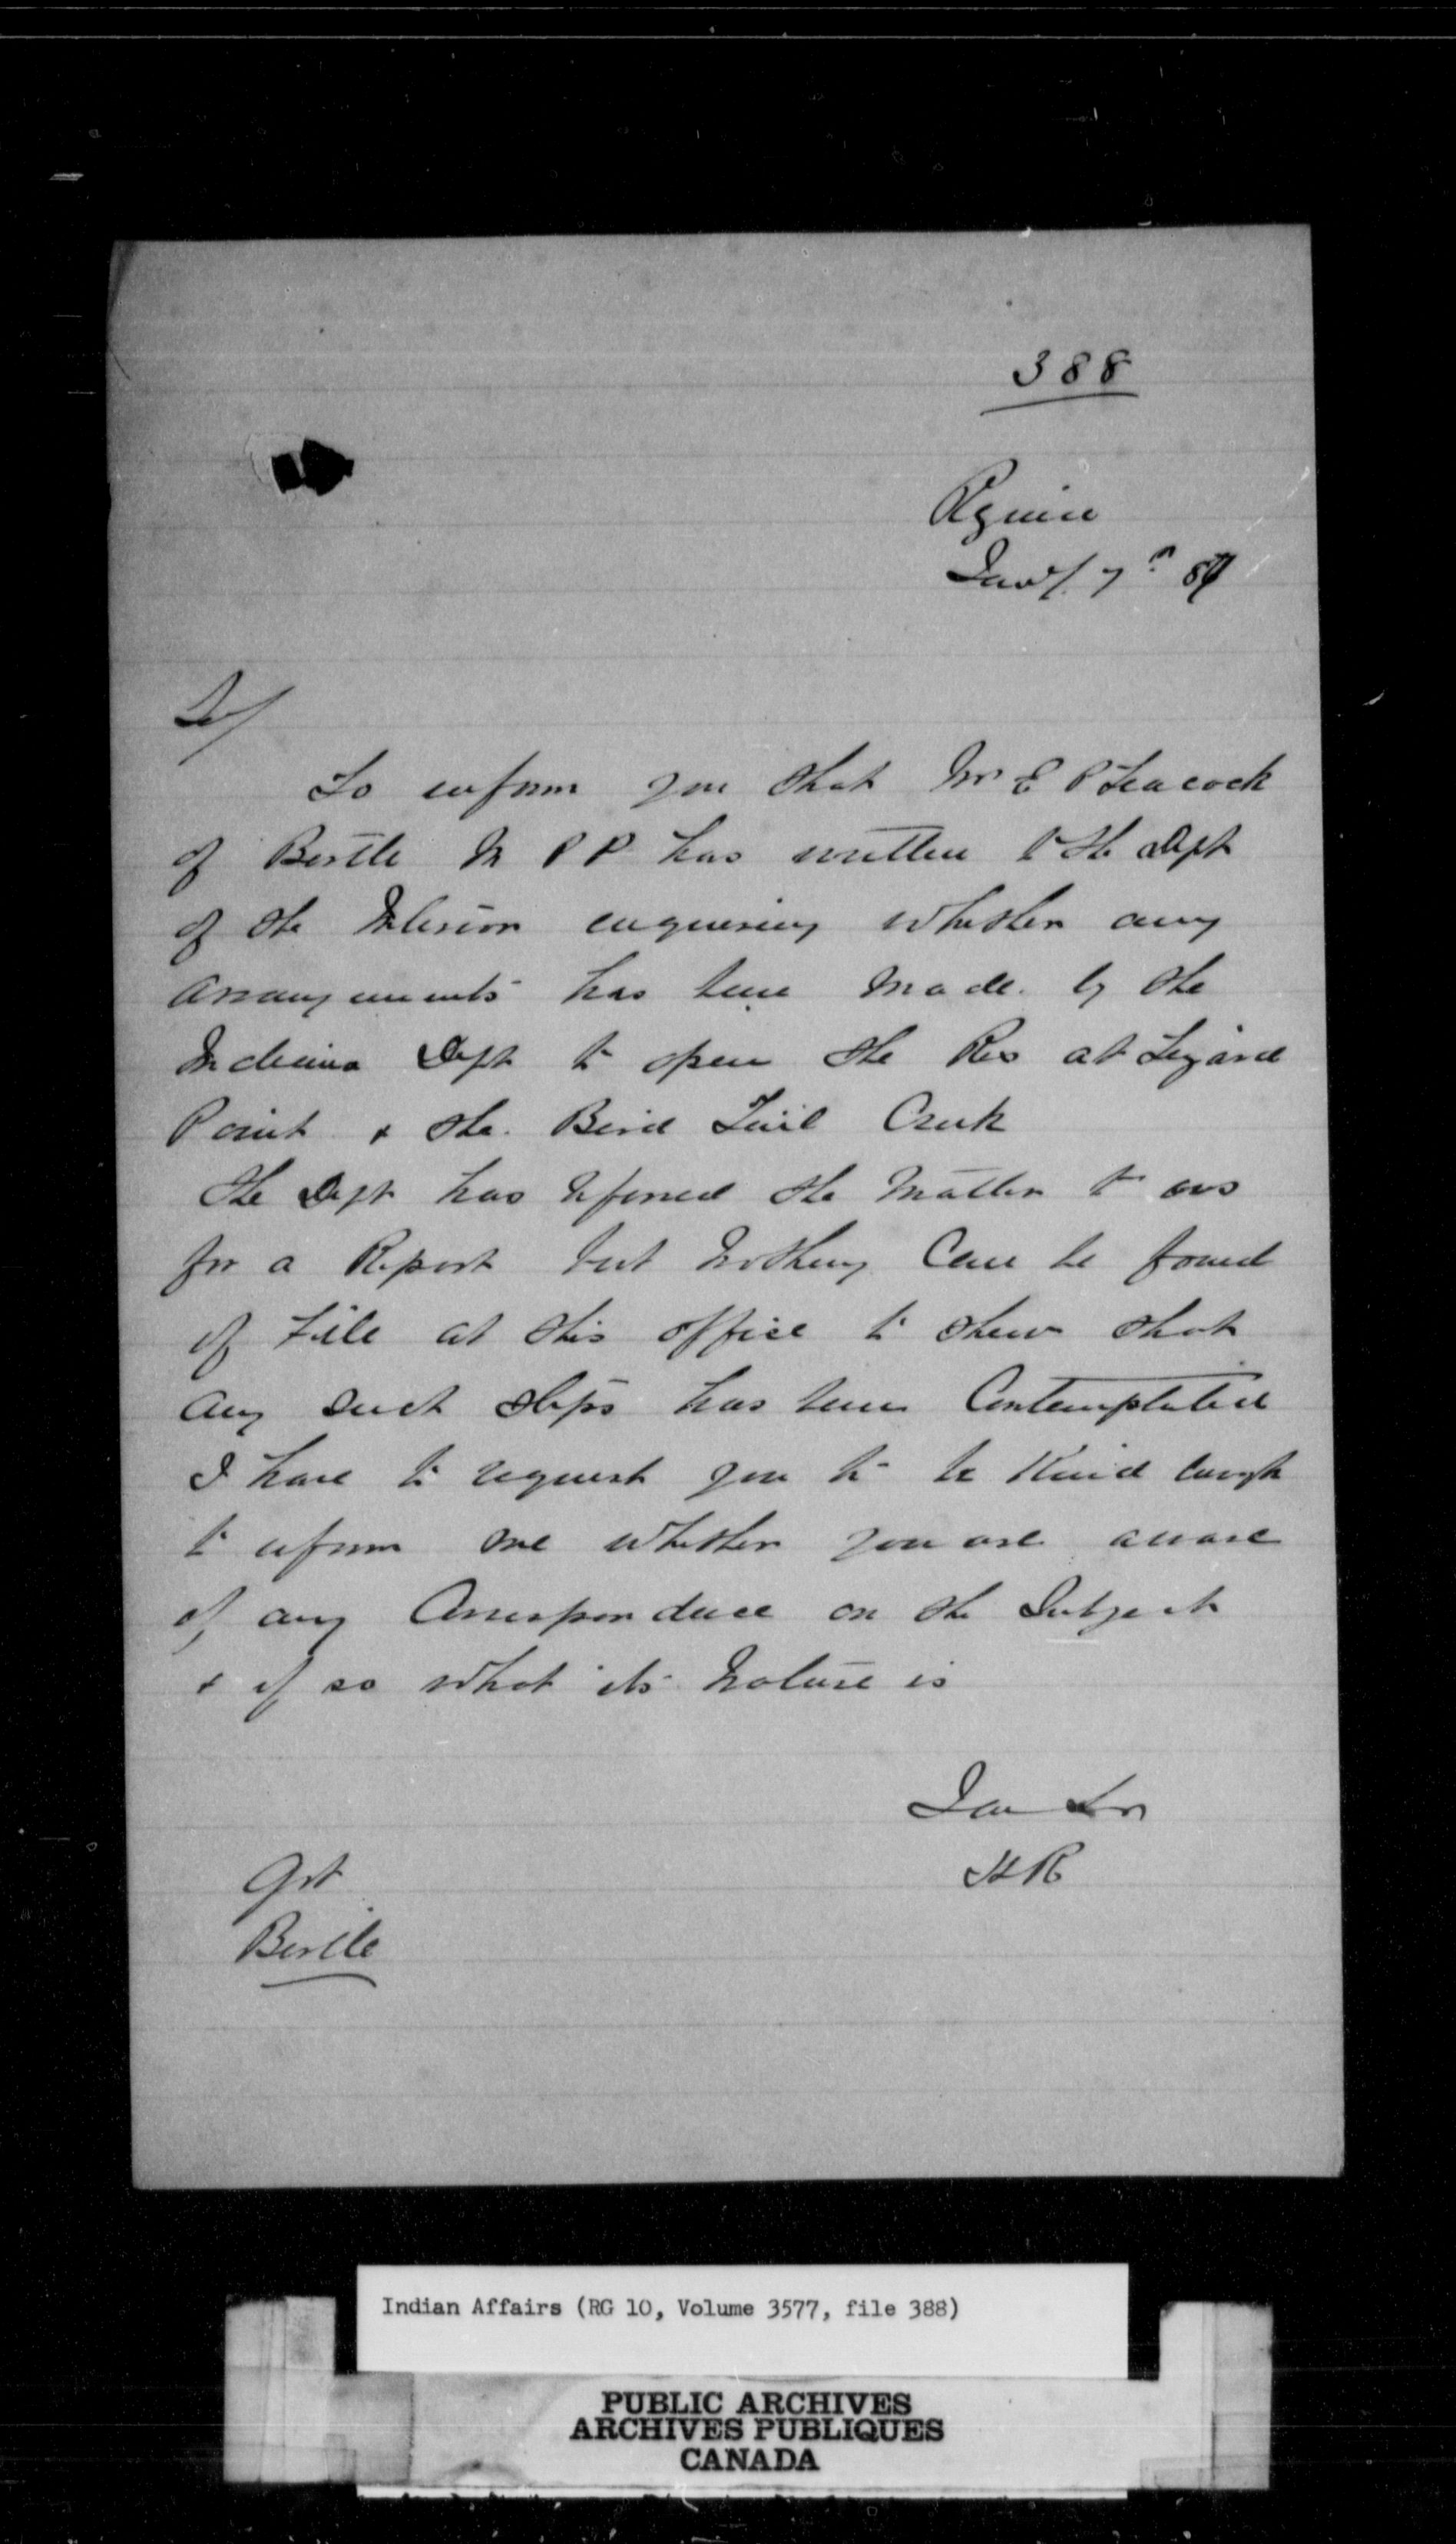 388
Regina
Jany 7th 87
Sir/
To inform you that Mr E P Leacock
of Birtle M P P has written to the Dept
of the Interior enquiring whether any
arrangements has been made by the
Indian Dept to open the Res at Lizard
Point & the Bird Tail Creek
the Dept has referred the matter to us
for a Report but nothing can be found
of File at this office to shew that
any such steps has been Contemplated
I have to request you to be Kind enough
to inform me whether you are aware
of any Correspondence on the Subject
& if so what its nature is
HR
Agt
Birtle
Indian Affairs (RG 10, Volume 3577, file 388)
PUBLIC ARCHIVES
ARCHIVES PUBLIQUES
CANADA